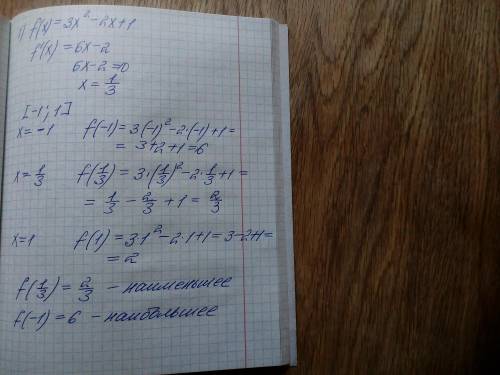 1) f(x) = 3x² - 2x + 1
f'(x) = 6x - 2
6x - 2 = 0
x = 1/3
[-1; 1]
x = -1 f(-1) = 3·(-1)² - 2·(-1) + 1 =
= 3 + 2 + 1 = 6
x = 1/3 f(1/3) = 3·(1/3)² - 2·1/3 + 1 =
= 1/3 - 2/3 + 1 = 2/3
x = 1 f(1) = 3·1² - 2·1 + 1 = 3 - 2 + 1 =
= 2
f(1/3) = 2/3 - наименьшее
f(-1) = 6 - наибольшее